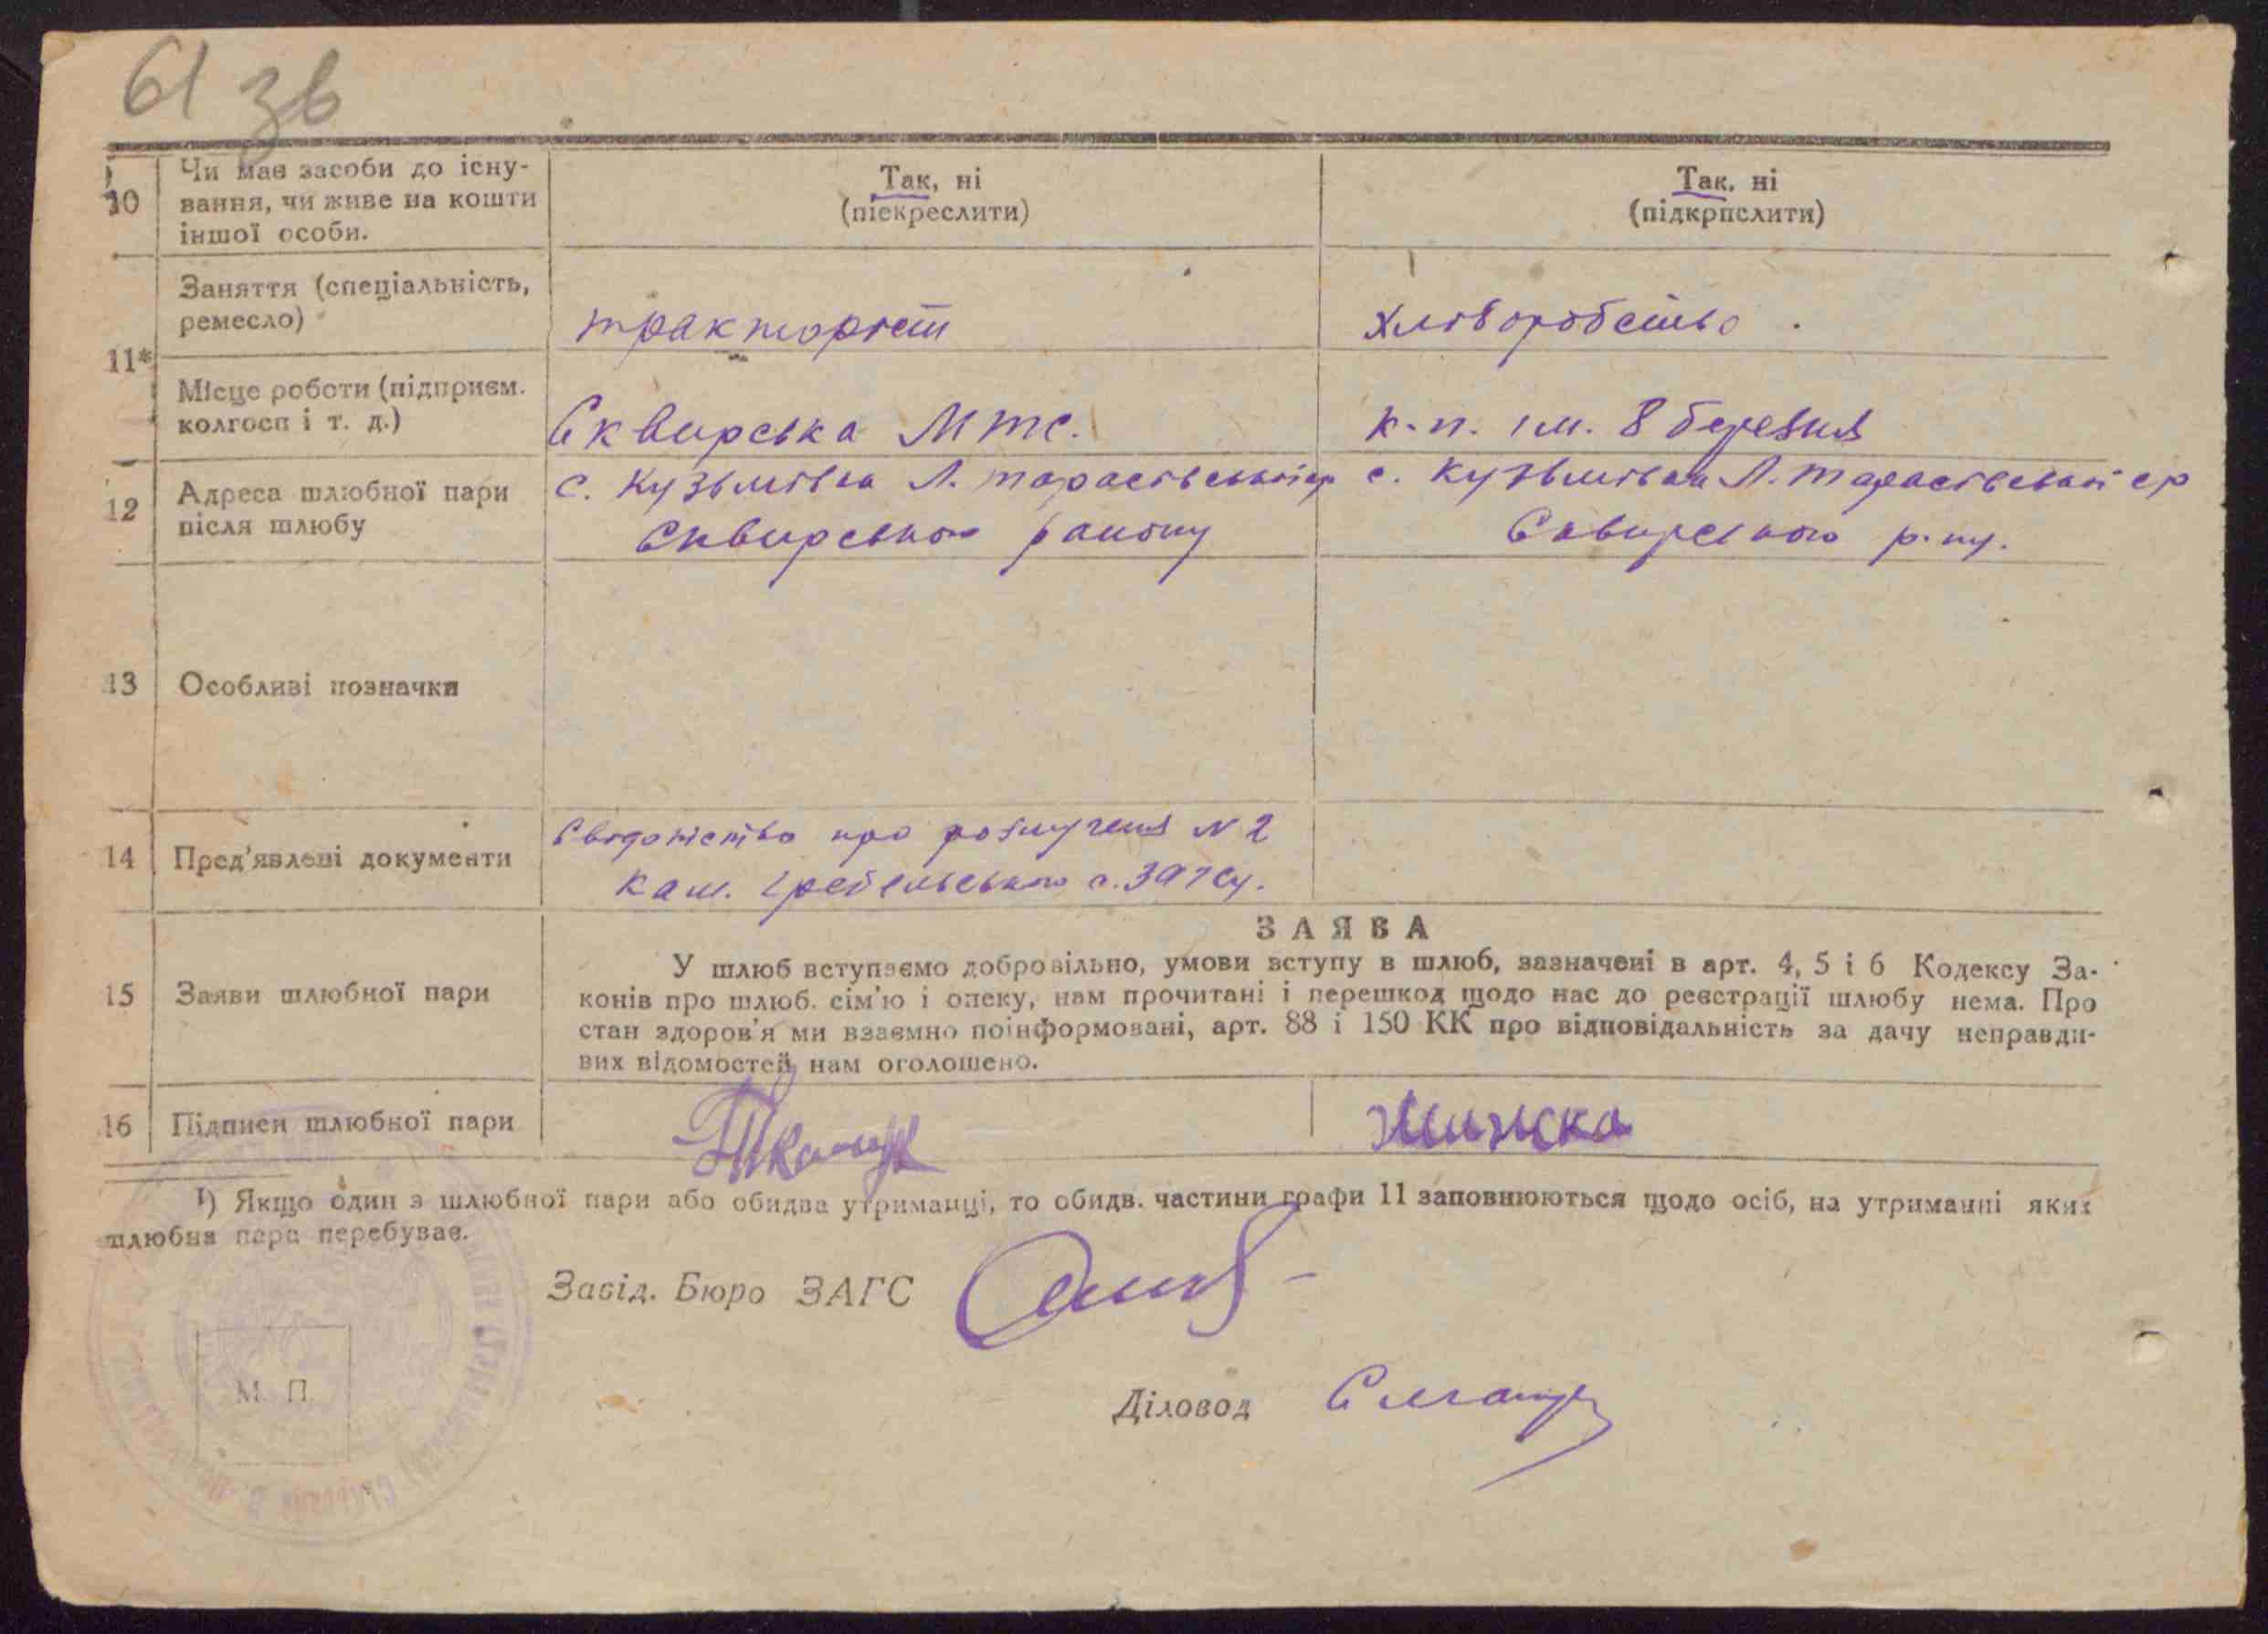 61 зв
10
Чи має засоби до існу-
вання, чи живе на кошти
іншої особи.
Так, ні
(піекреслити)
Так. ні
(підкрпслити)
11*
Заняття (спеціальність,
ремесло)
тракторіст
хліборобство
Місце роботи (підприєм.
колгосп і т. д.)
Сквирська МТС.
к-п. ім. 8 березня
12
Адреса шлюбної пари
після шлюбу
с. Кузьмівка Л. Тарасівської ср
Сквирського району
с. Кузьмівка Л. Тарасівської ср
Сквирського р-ну.
13
Особливі позначки
14
Пред'явлені документи
Свідотство про розлучення N 2
Гребельського с. ЗАГСу.
15
Заяви шлюбної пари
ЗАЯВА
У шлюб вступаємо добровільно, умови вступу в шлюб, зазначені в арт. 4, 5 і 6 Кодексу За-
конів про шлюб. сім'ю і опеку, нам прочитані і перешкод щодо нас до реєстрації шлюбу нема. Про
стан здоров'я ми взаємно поінформовані, арт. 88 і 150 КК про відповідальність за дачу неправди-
вих відомостей нам оголошено.
16
Підписи шлюбної пари
¹) Якщо один з шлюбної пари або обидва утриманці, то обидв. частини графи 11 заповнюються щодо осіб, на утриманні яких
шлюбна пара перебуває.
Завід. Бюро ЗАГС
Діловод
М. П.